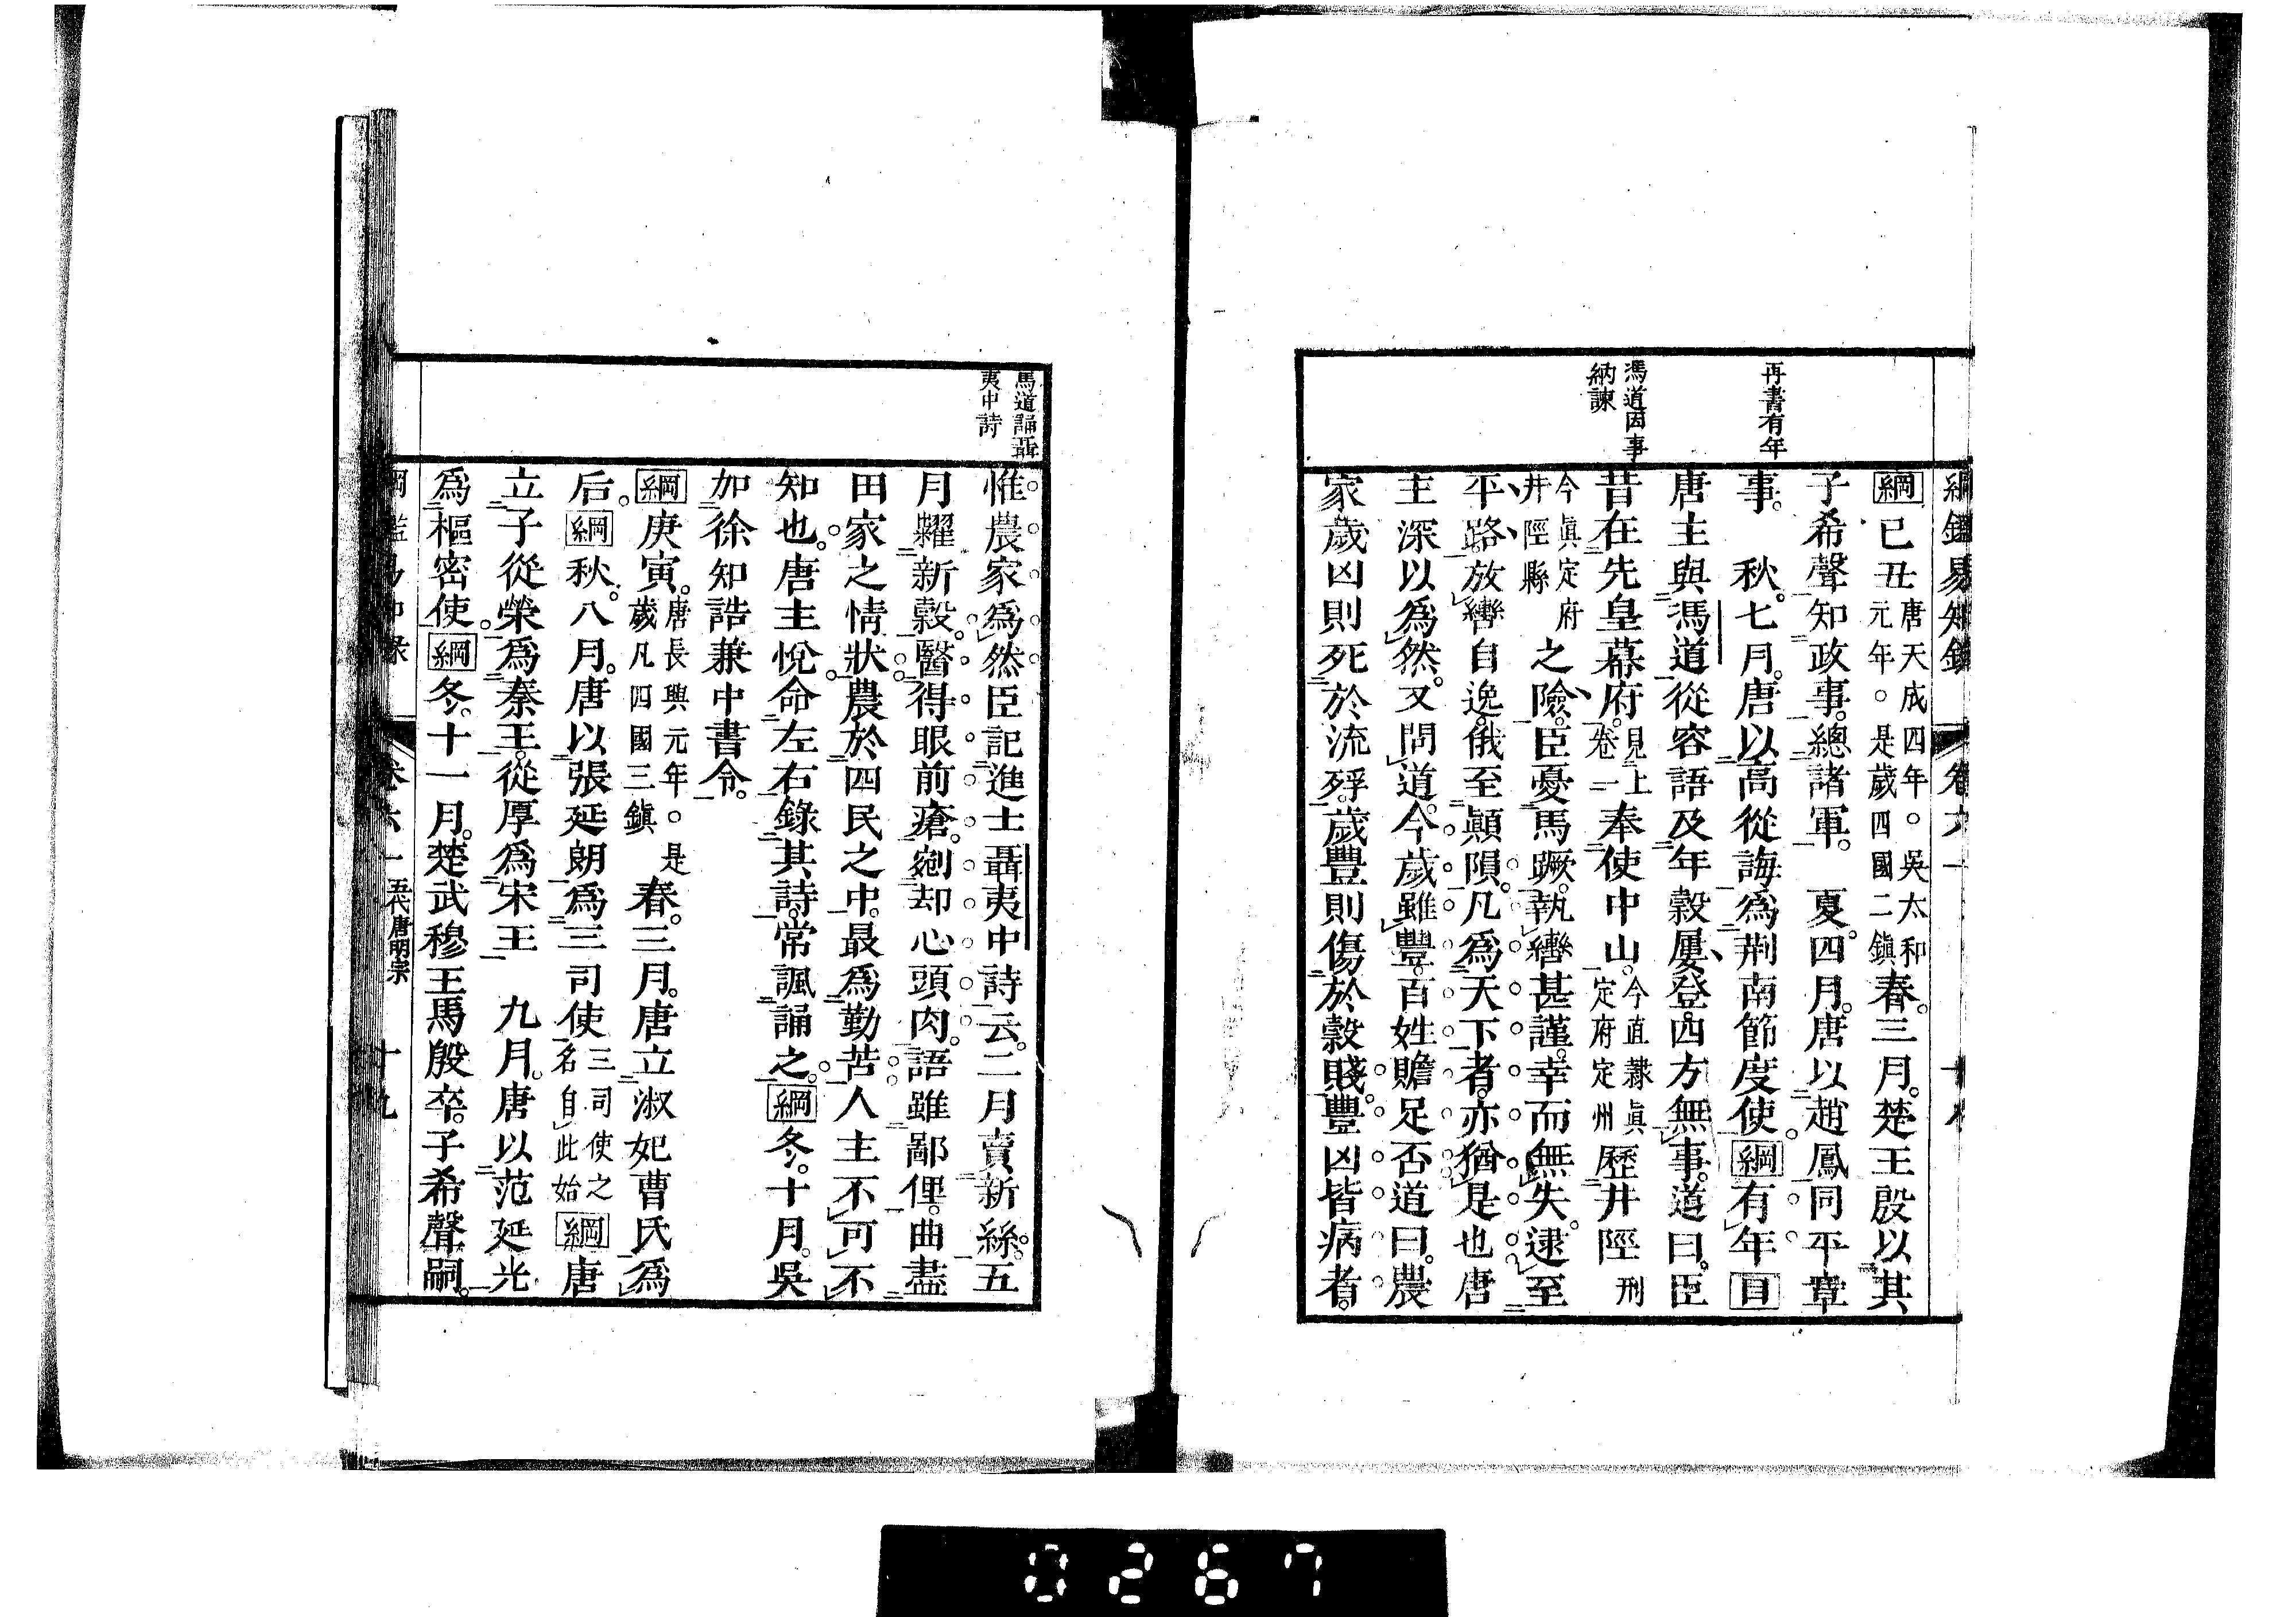 綱鑑易知錄 卷六一 十九
再書有年
馮道因事
納諫
綱己丑唐天成四年。吳太和元年。是歲四國二鎮春。三月。楚王殷以其
子希聲知政事。總諸軍。 夏。四月。唐以趙鳳同平章
事。 秋。七月。唐以高從誨爲荆南節度使。綱有年目
唐主與馮道從容語及年穀屢登。四方無事。道曰。臣
昔在先皇幕府。見上卷一奉使中山。今直隸眞定府定州歷井陘刑
今眞定府井陘縣之險。臣憂馬蹶。執轡甚謹。幸而無失。逮至
平路。放轡自逸。俄至顚隕。凡爲天下者。亦猶是也唐
主深以爲然。又問道。今歲雖豐。百姓贍足否道曰。農
家歲凶則死於流殍。歲豐則傷於穀賤。豐凶皆病者。
馮道誦聶
夷中詩
惟農家爲然臣記進士聶夷中詩云。二月賣新絲。五
月糶新穀。醫得眼前瘡。剜却心頭肉。語雖鄙俚。曲盡
田家之情狀。農於四民之中。最爲勤苦。人主不可不
知也。唐主悅。命左右錄其詩。常諷誦之。綱冬。十月。吳
加徐知誥兼中書令。
綱庚寅。唐長興元年。是歲凡四國三鎮春。三月。唐立淑妃曹氏爲
后。綱秋。八月。唐以張延朗爲三司使三司使之名自此始綱唐
立子從榮爲秦王。從厚爲宋王 九月。唐以范延光
爲樞密使。綱冬。十一月。楚武穆王馬殷卒。子希聲嗣。
綱鑑易知錄 卷六一 五代唐明宗 十九
0267